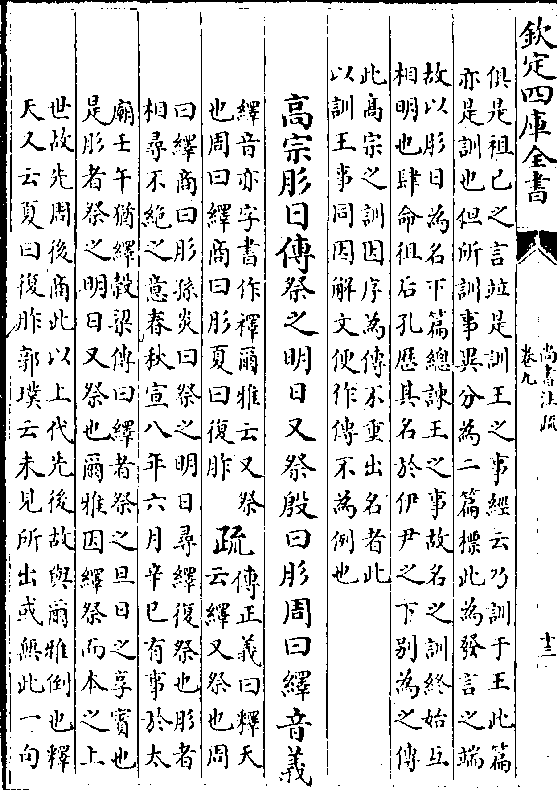 欽定四庫全書
尚書注疏
卷九
十三
俱是祖己之言並是訓王之事經云乃訓于王此篇
亦是訓也但所訓事異分為二篇標此為發言之端
故以肜日為名下篇總諫王之事故名之訓終始互
相明也肆命徂后孔歴其名於伊尹之下別為之傳
此高宗之訓因序為傳不重出名者此
以訓王事同因解文便作傳不為例也
高宗肜日傳祭之明日又祭殷曰肜周曰繹音義
繹音亦字書作襗爾雅云又祭
也周曰繹商曰肜夏曰復胙
疏
傳正義曰釋天
云繹又祭也周
曰繹商曰肜孫炎曰祭之明日尋繹復祭也肜者
相尋不絶之意春秋宣八年六月辛巳有事於太
廟壬午猶繹穀梁傳曰繹者祭之旦日之享賓也
是肜者祭之明日又祭也爾雅因繹祭而本之上
世故先周後商此以上代先後故與爾雅倒也釋
天又云夏曰復胙郭璞云未見所出或無此一句